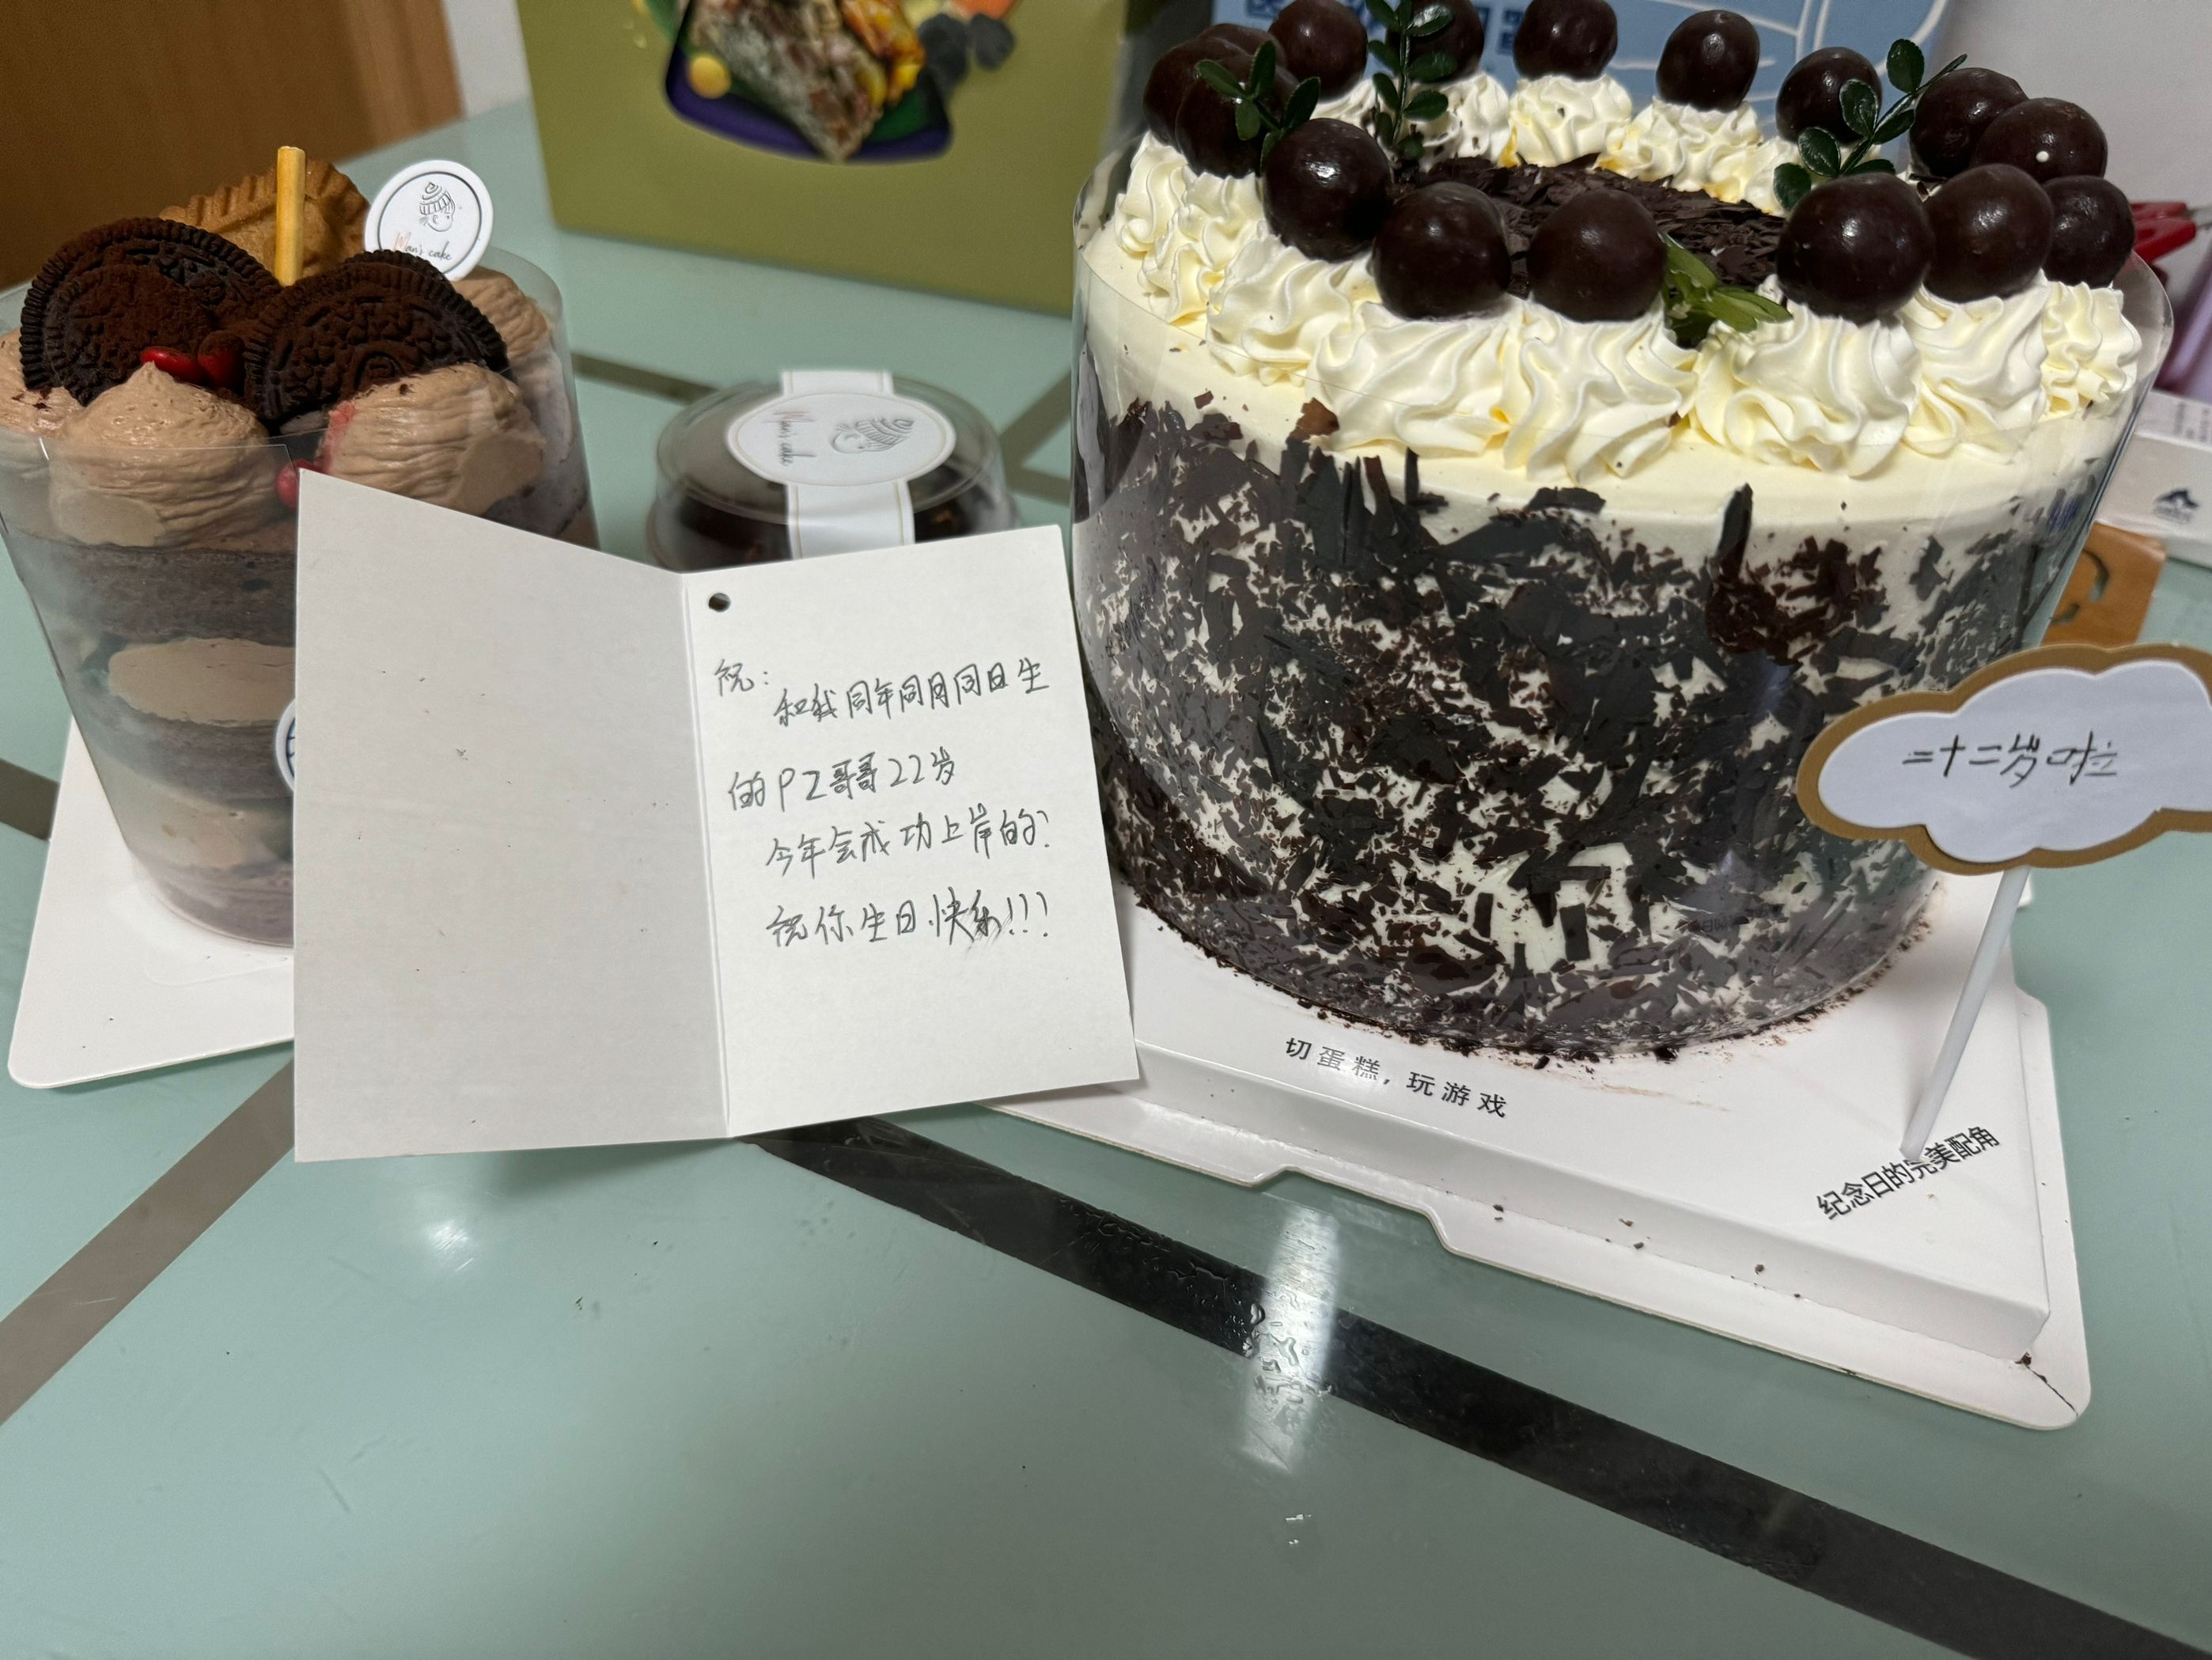 Man's cake
Man's cake
祝:
和我同年同月同日生
的PZ哥哥22岁
今年会成功上岸的!
祝你生日快乐!!!
二十二岁啦
切蛋糕,玩游戏
纪念日的完美配角